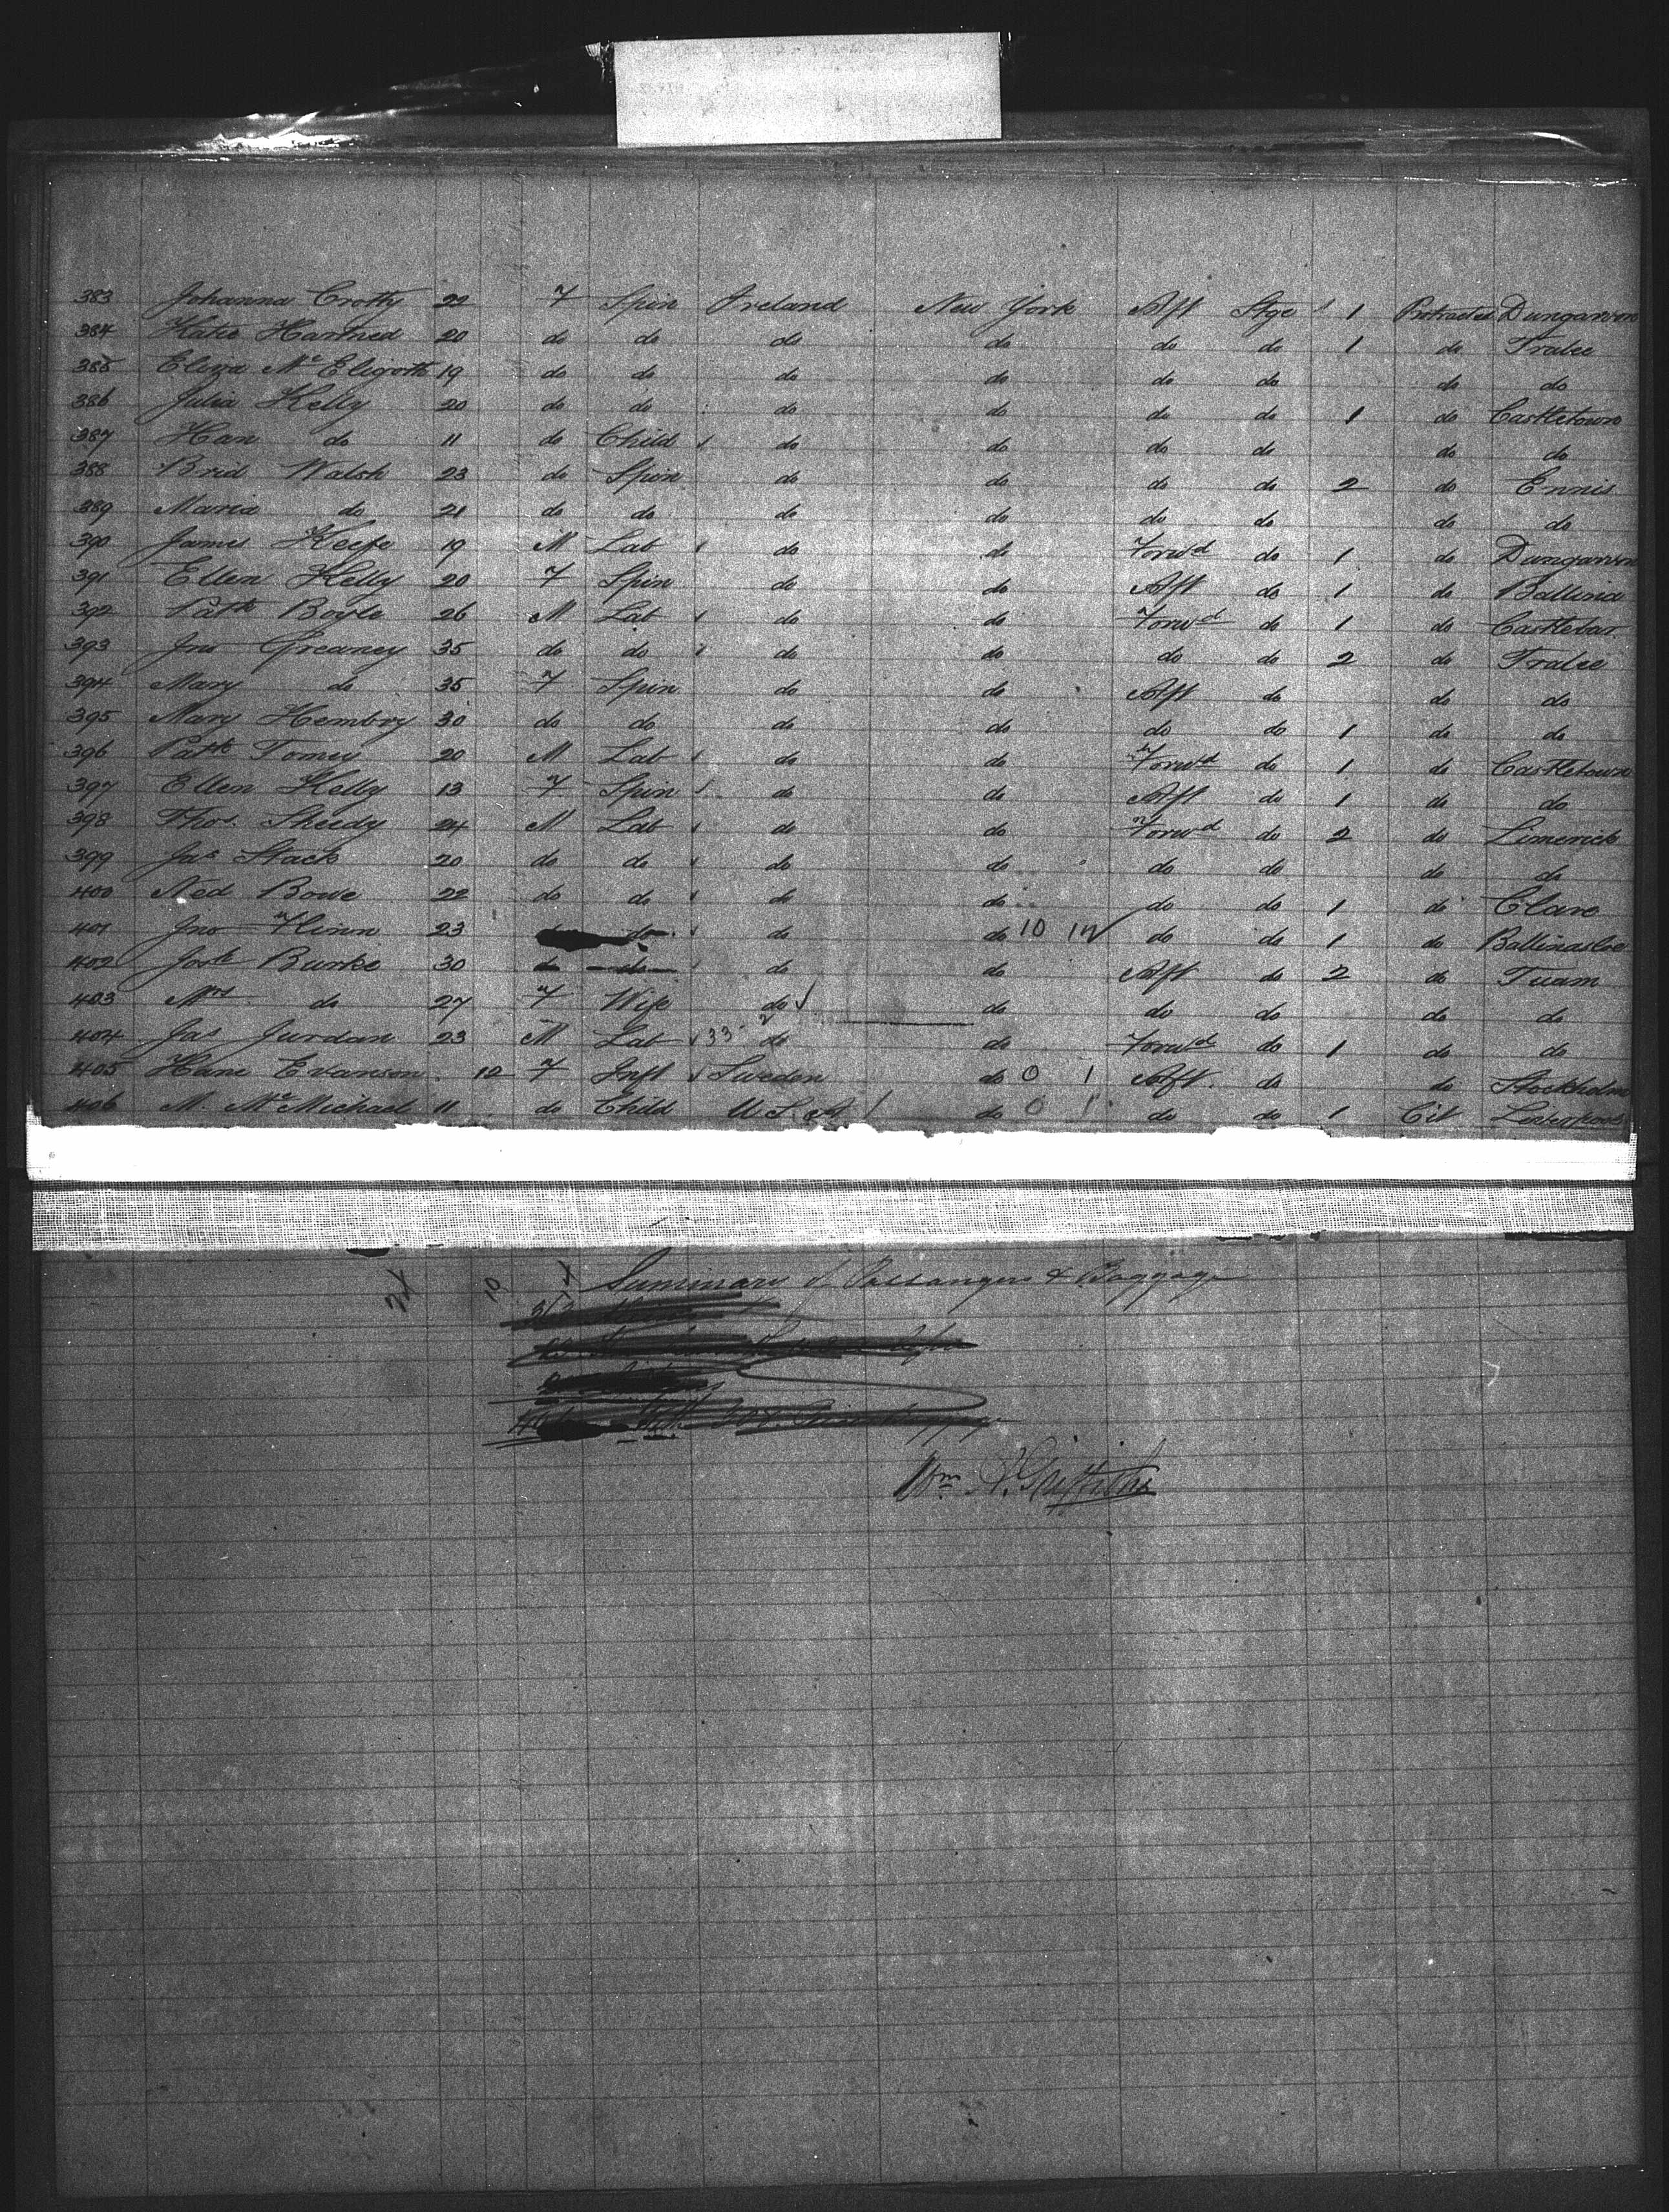 383 Johanna Crotty 22 F Spin Ireland New York Aft Stge 1 Protracted Dungarvon
384 Katie Hartned 20 do do do do do do 1 do Tralee
385 Eliza McEligott 19 do do do do do do do do
386 Julia Kelly 20 do do do do do do 1 do Castletown
387 Han do 11 do Child do do do do do do
388 Brid Walsh 23 do Spin do do do do 2 do Ennis
389 Maria do 21 do do do do do do do do
390 James Keefe 19 M Lab do do Forwd do 1 do Dungarvon
391 Ellen Kelly 20 F Spin do do Aft do 1 do Ballina
392 Patk Boyle 26 M Lab do do Forwd do 1 do Castlebar
393 Jno Greaney 35 do do do do do do 2 do Tralee
394 Mary do 35 F Spin do do Aft do do do
395 Mary Hembry 30 do do do do do do 1 do do
396 Patk Tomey 20 M Lab do do Forwd do 1 do Castletown
397 Ellen Kelly 13 F Spin do do Aft do 1 do do
398 Thos. Sheedy 24 M Lab do do Forwd do 2 do Limerick
399 Jas Stack 20 do do do do do do do do
400 Ned Bowe 22 do do do do do do 1 do Clare
401 Jno Flinn 23 do do do 10 14 do do 1 do Ballinasloe
402 Josh Burke 30 do do do do Aft do 2 do Tuam
403 Mrs do 27 F Wife do do do do do do
404 Jas Jurdan 23 M Lab 33 2 do do Forwd do 1 do do
405 Hane Evanson 12 F Inft Sweden do 0 1 Aft. do do Stockholm
406 M. McMichael 11 do Child U.S.A do 0 1 do do 1 Cit Liverpool
Summary of Passangers & Baggage
Wm A. Griffiths